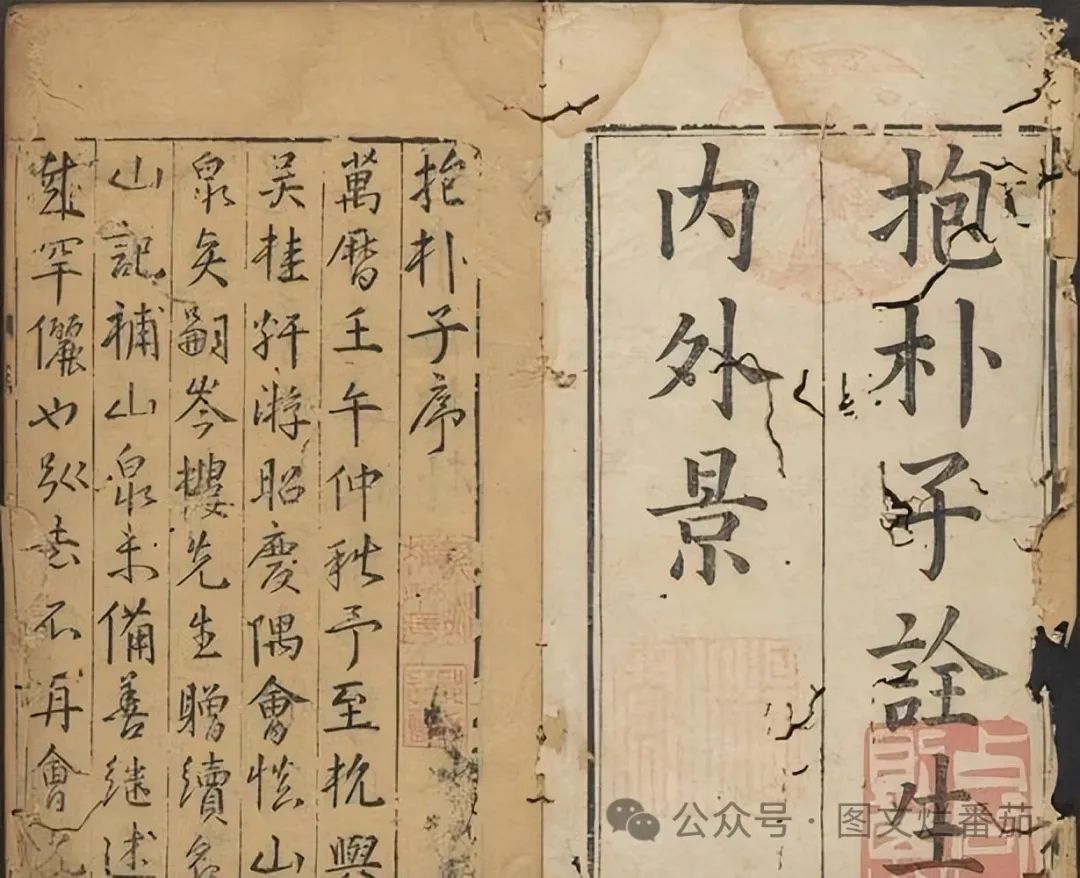 抱朴子詮生
内外景
抱朴子序
萬曆壬午仲秋予至杭與
吴桂軒游昭慶隅會慎山
泉矣嗣岑樓先生贈續名
山記補山泉未備善継述
哉罕儷也别去不再會
公众号 · 图文烂番茄